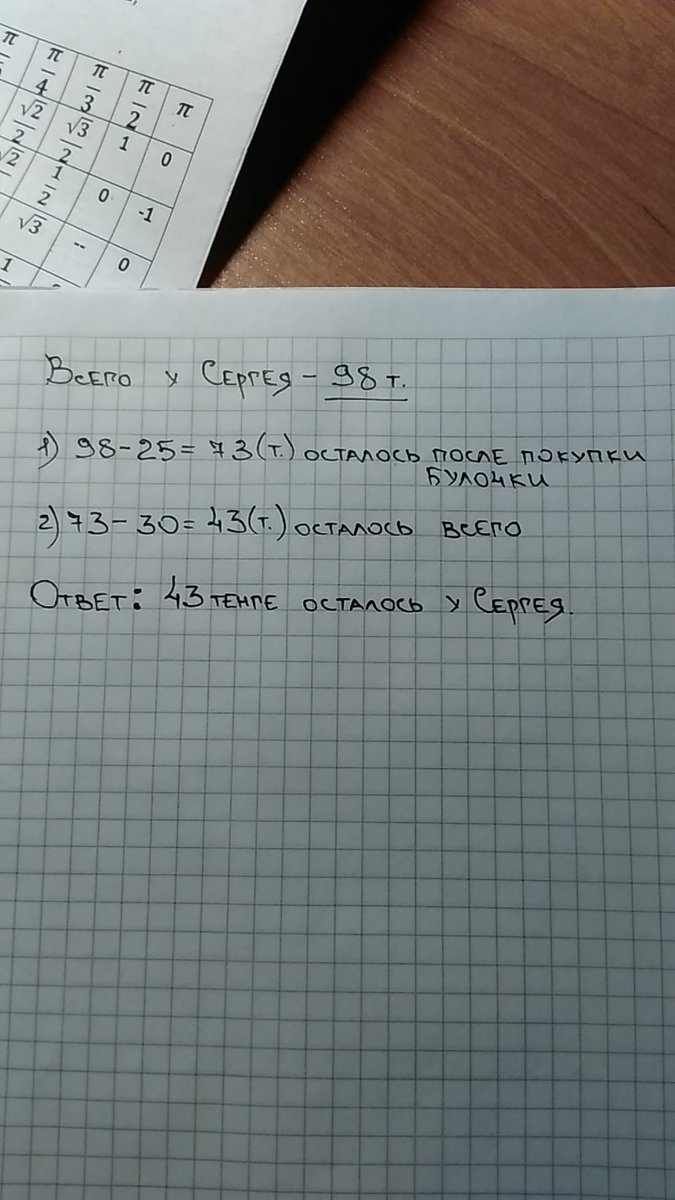 π π π π π
4 3 2
√2 √3 1 0
2 2
√2 1 0 -1
2
√3 -- 0
1
Всего у Сергея - 98 т.
1) 98 - 25 = 73 (т.) осталось после покупки
булочки
2) 73 - 30 = 43 (т.) осталось всего
Ответ: 43 тенге осталось у Сергея.